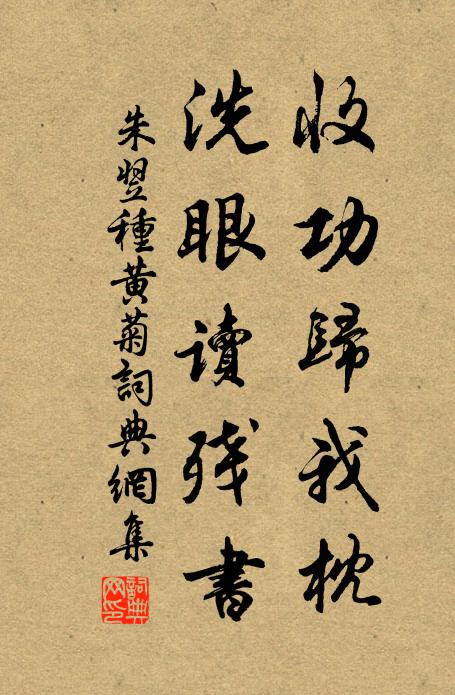 收功歸我枕
洗眼讀残書
朱翌種黃菊詞典網集
詞典網印